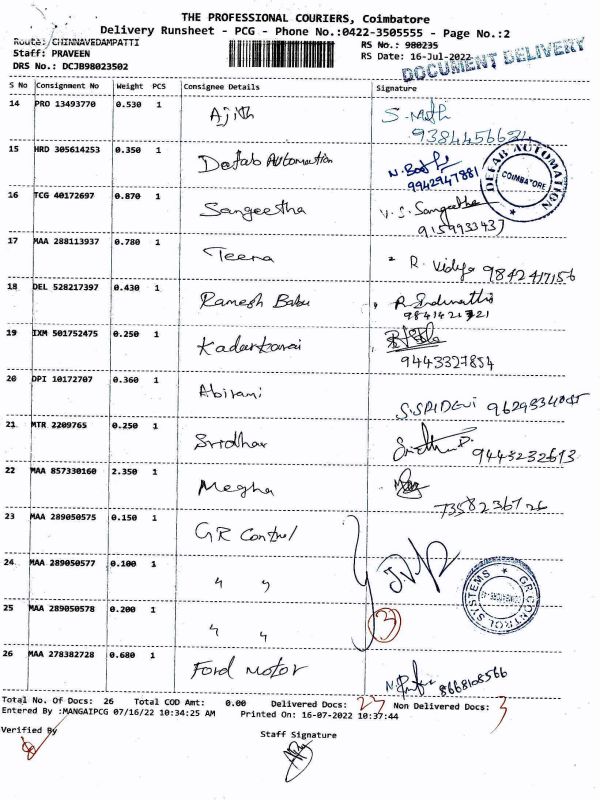 THE PROFESSIONAL COURIERS, Coimbatore
Delivery Runsheet - PCG - Phone No.:0422-3505555 - Page No.:2
Route: CHINNAVEDAMPATTI RS No.: 980235
Staff: PRAVEEN RS Date: 16-Jul-2022
DRS No.: DCJB98023502 DOCUMENT DELIVERY
S No Consignment No Weight PCS Consignee Details Signature
14 PRO 13493770 0.530 1 Ajith
15 HRD 305614253 0.350 1 Defab Automation
9942947881
DEFAB AUTOMATION
COIMBATORE
16 TCG 40172697 0.870 1 Sangeetha V. S. Sangeetha
9159933437
17 MAA 288113937 0.780 1 Teena R. Vidya 9842417156
18 DEL 528217397 0.430 1 Ramesh Babu
19 IXM 501752475 0.250 1
9443327854
20 DPI 10172707 0.360 1 Abirami S.SRIDEVI
21 MTR 2209765 0.250 1 Sridhar
9443232613
22 MAA 857330160 2.350 1 Megha
23 MAA 289050575 0.150 1 GR Control
24 MAA 289050577 0.100 1 " "
GR CONTROL SYSTEMS
25 MAA 289050578 0.200 1 " " 3
26 MAA 278382728 0.680 1 Ford Motor 8668108566
Total No. Of Docs: 26 Total COD Amt: 0.00 Delivered Docs: 23 Non Delivered Docs: 3
Entered By :MANGAIPCG 07/16/22 10:34:25 AM Printed On: 16-07-2022 10:37:44
Verified By Staff Signature